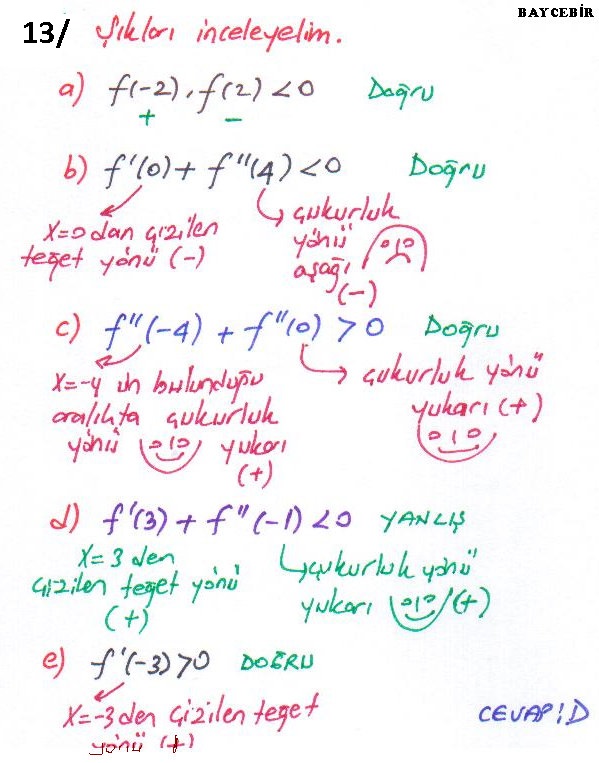 BAYCEBİR
13/ Şıkları inceleyelim.
a) f(-2).f(2) <0 Doğru
+ -
b) f'(0) + f''(4) <0 Doğru
x=0 dan çizilen
teğet yönü (-)
çukurluk
yönü
aşağı
(-)
c) f''(-4) + f''(0) >0 Doğru
x=-4 ün bulunduğu
aralıkta çukurluk
yönü yukarı
(+)
çukurluk yönü
yukarı (+)
d) f'(3) + f''(-1) <0 YANLIŞ
x=3 den
çizilen teğet yönü
(+)
çukurluk yönü
yukarı (+)
e) f'(-3)>0 DOĞRU
x=-3 den çizilen teğet
yönü (+)
CEVAP:D